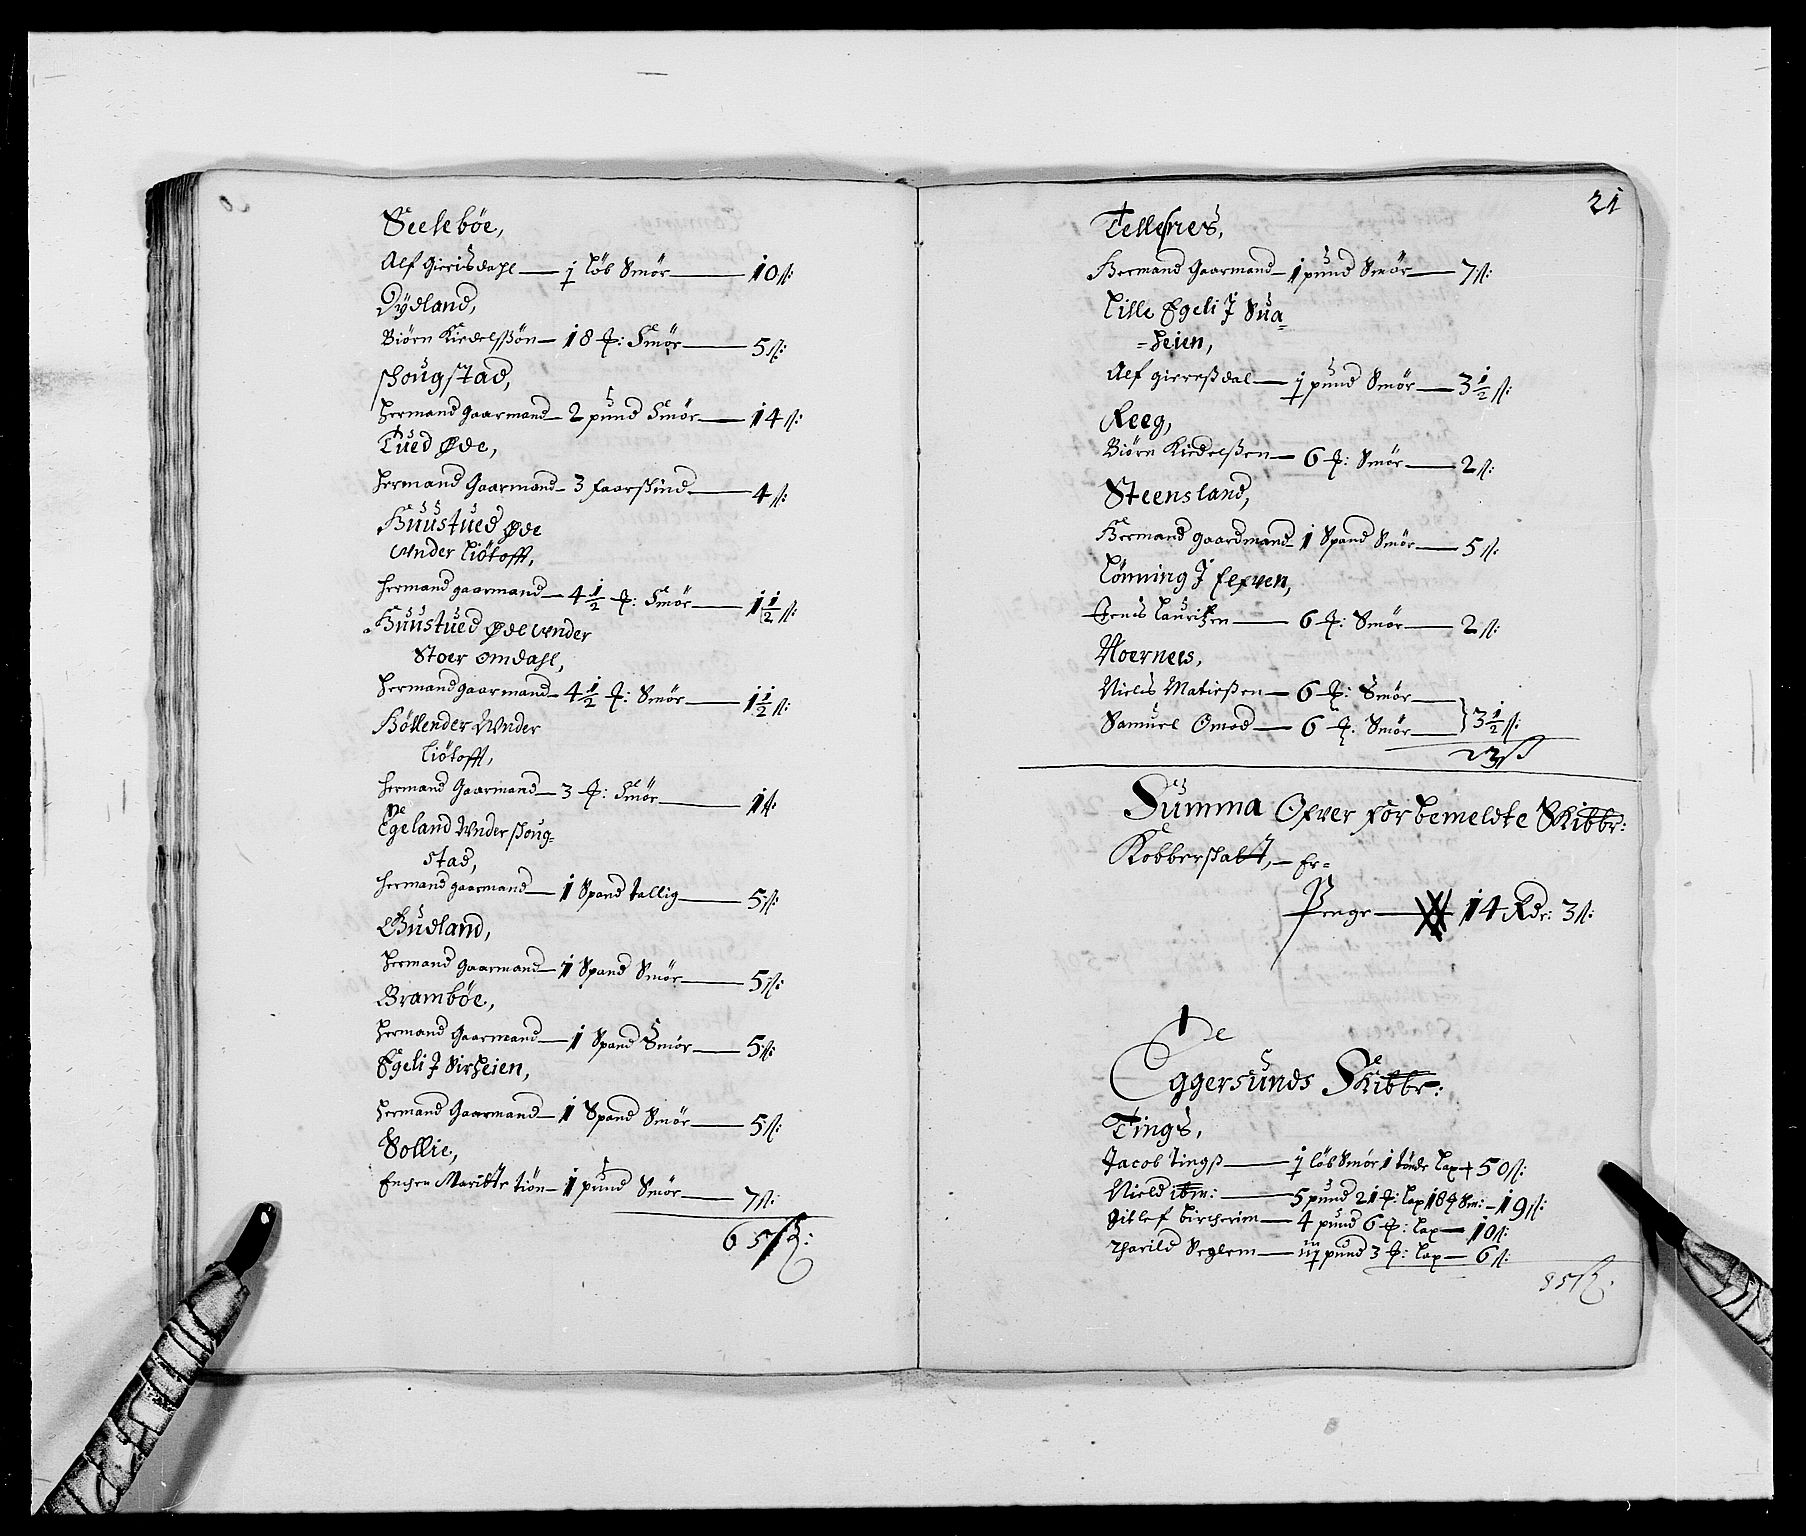 Seelebøe,
Alf Gierisdahl — ½ løb Smør — 10 ß:
Dÿdland,
Biørn Kiedelssøn — 18 ₰: Smør — 5 ß:
schougstad,
hermand Gaarmand — 2 pund Smør — 14 ß:
Tued Øde,
hermand Gaarmand — 3 faarschind — 4 ß:
Huustued Øde
under liøtofft,
hermand gaarmand — 4½ ₰: Smør — 1½ ß:
Huustued Øde under
Stoer omdahl,
hermand gaarmand — 4½ ₰: Smør — 1½ ß:
Høllender Under
liøtofft,
hermand Gaarmand — 3 ₰: Smør — 1 ß
Egeland Under schoug-
stad,
hermand gaarmand — 1 Spand tallig — 5 ß:
Gudland,
hermand Gaarmand — 1 Spand Smør — 5 ß:
Brambøe,
hermand Gaarmand — 1 Spand Smør — 5 ß:
Egeli J Sirheien,
hermand Gaarmand — 1 Spand Smør — 5 ß:
Sollie,
Enchen Maritte tiøn — 1 pund Smør — 7 ß:
65 ß:
21
Tellesnes,
Hermand Gaarmand — 1 pund Smør — 7 ß:
Lille Egeli J Sua-
-heien,
Alf gieressdal — ½ pund Smør — 3½ ß:
Reeg,
Biørn Kiedelssen — 6 ₰: Smør — 2 ß:
Steensland,
Hermand Gaardmand — 1 Spand Smør — 5 ß:
Lønning J
Jens Lauritzen — 6 ₰: Smør — 2 ß:
Moernees,
Niels Matiessen — 6 ₰: Smør —
Samuel Omod — 6 ₰: Smør — } 3½ ß:
23 ß
Summa Ofver forbemeldte Skibbr:
Kobberschatt, — Er-
Penge — 14 Rdr: 3 ß:
Eggersunds Skibbr:
Tings,
Jacob tingss — ½ løb Smør, 1 tønde lax 50 ß:
Niels itm: — 5 pund 21 ₰: lax 18 ₰ Sm: — 19 ß:
Birchreim — 4 pund 6 ₰: lax — 10 ß:
Seglem — pund 3 ₰: lax — 6 ß:
85 ß: